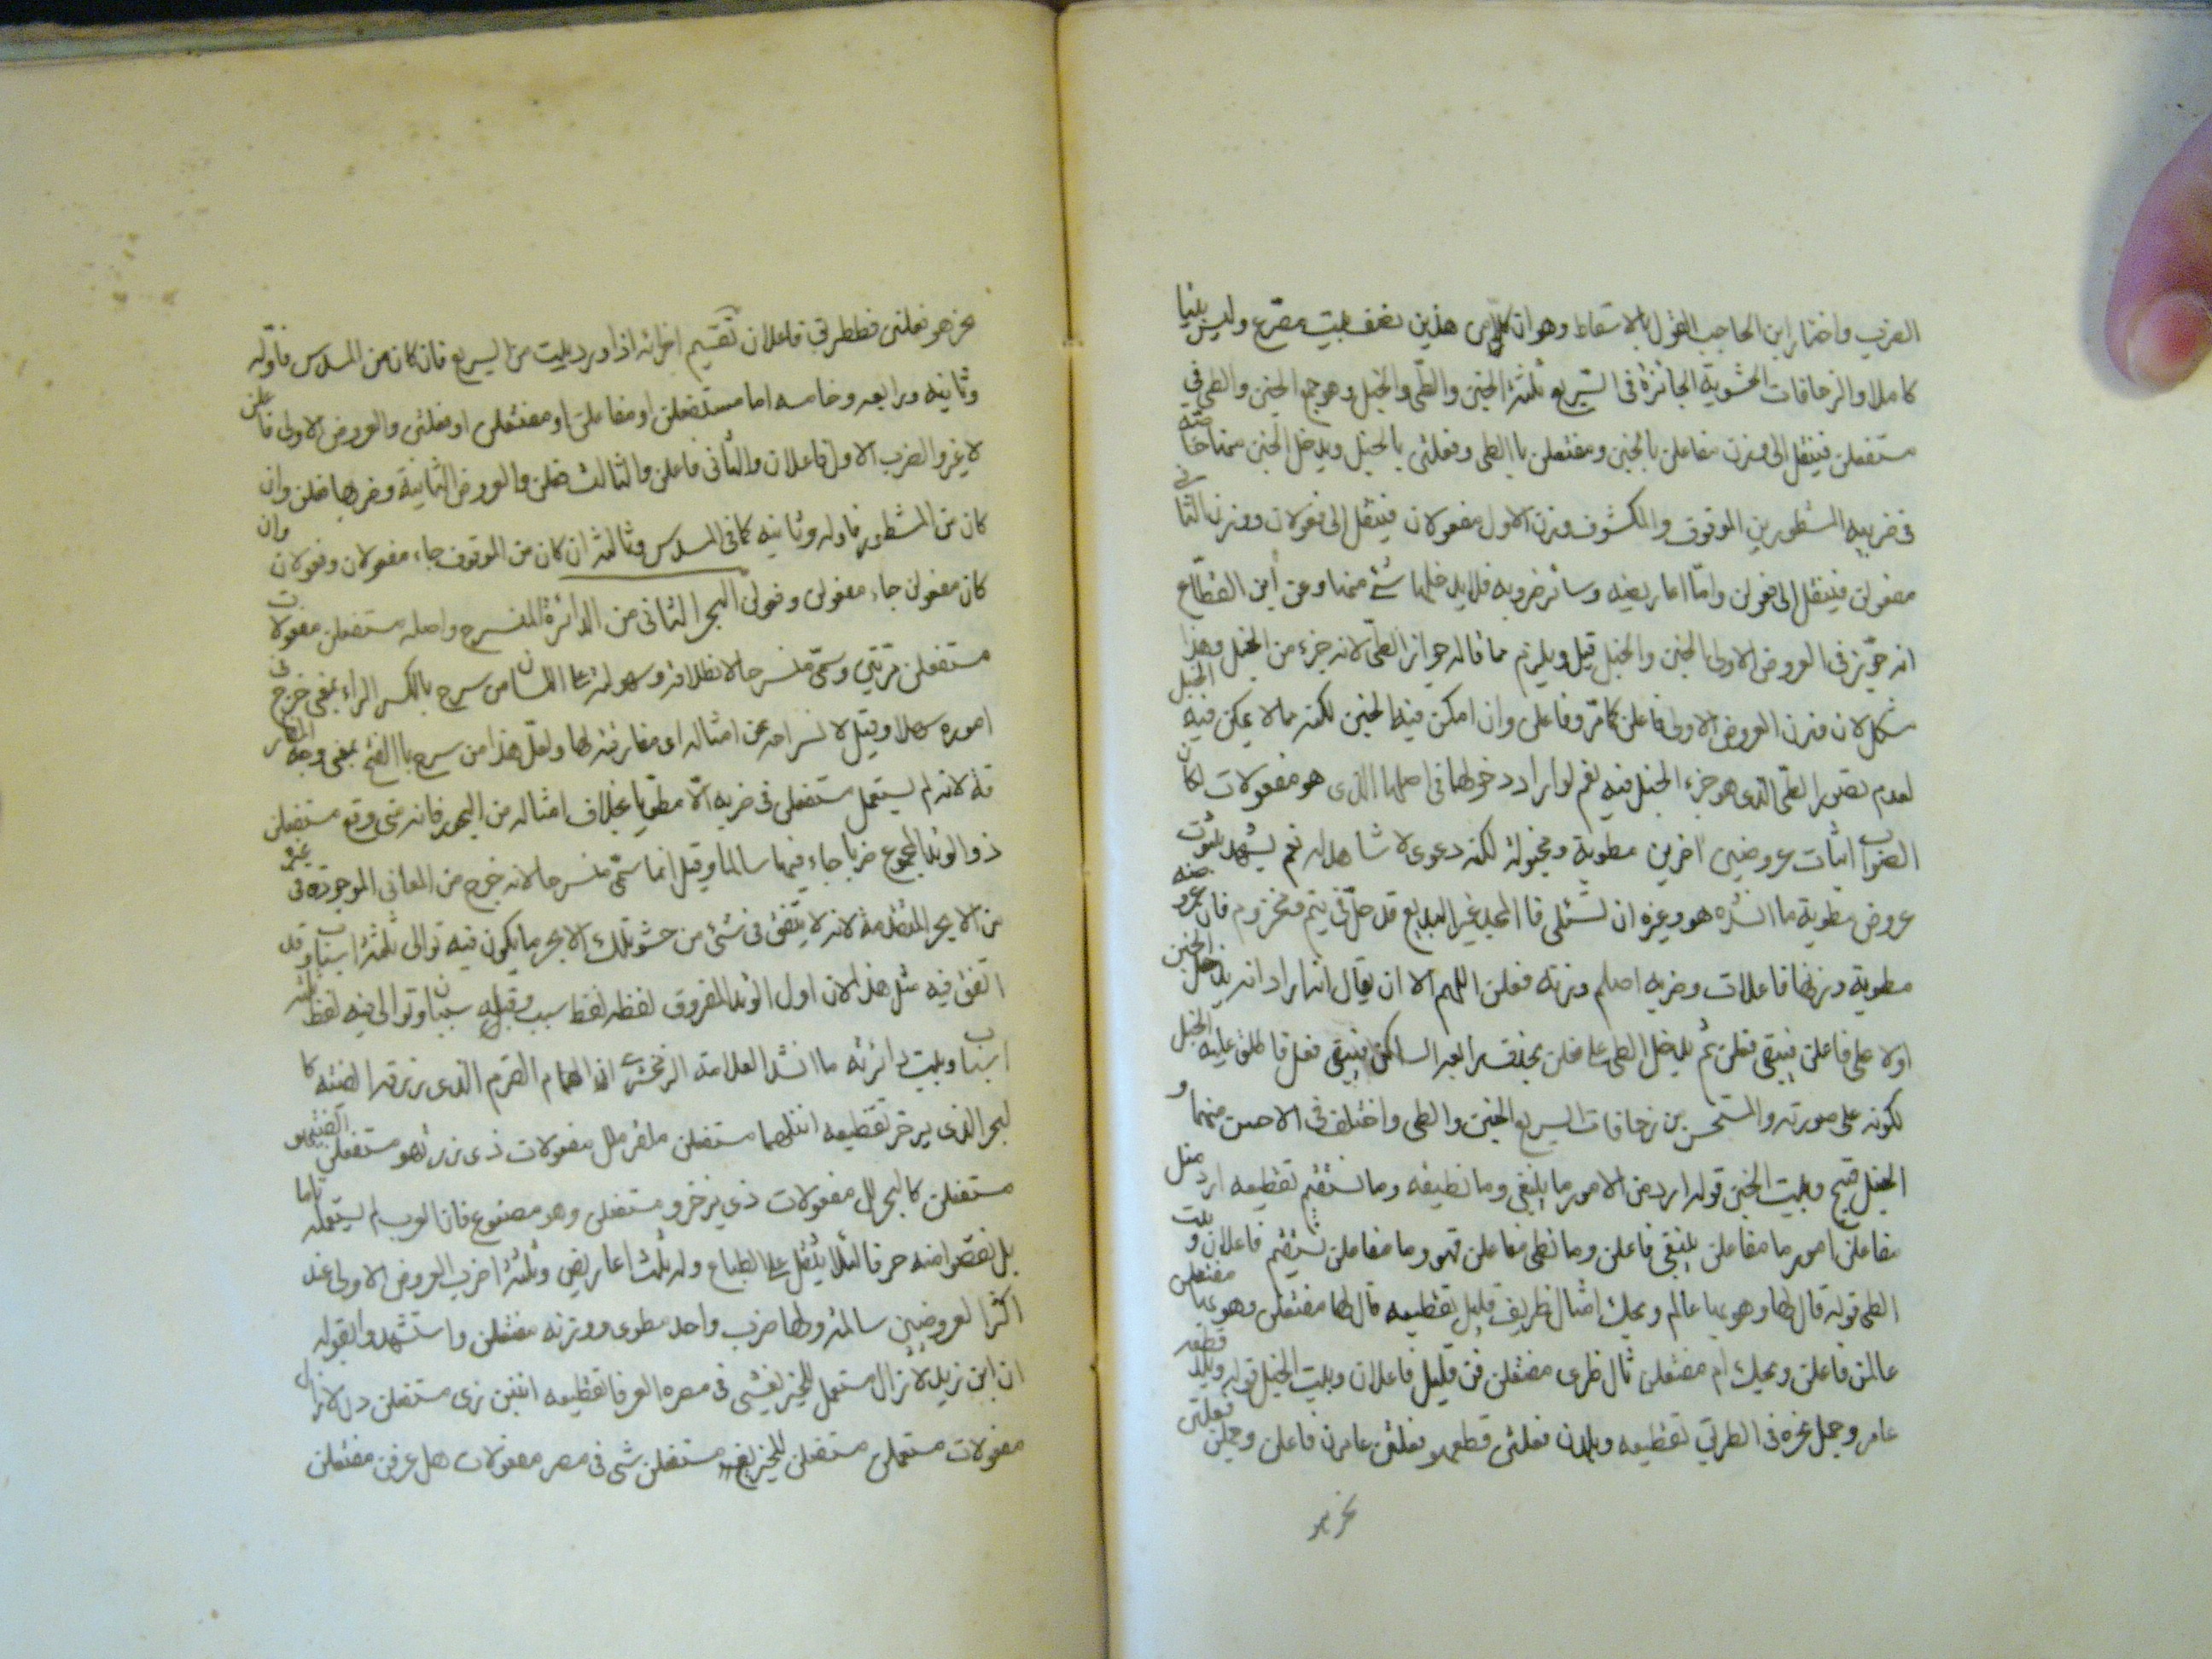 الضرب واختار ابن الحاجب القول بالاسقاط وهو ان كلا من هذين نصف بيت مصرع وليس بيتا
كاملا والزحافات الحشوية الجائزة فى السريع ثلثة الخبن والطى والخبل وهو جمع الخبن والطى في
مستفعلن فينقل الى وزن مفاعلن بالخبن ومفتعلن باالطى وفعلتن بالخبل ويدخل الخبن منه
فى ضربيه المشطورين الموقوف والمكشوف وزن الاول مفعولان فينقل الى فعولان ووزن الثانى
مفعولن فينقل الى فعولن واما اعاريضه وسائر ضروبه فلا يدخلها شئ منها وعن ابن القطاع
انه جوّز فى العروض الاولى الخبن والخبل قيل ويلزم مما قاله جواز الطى لانه جزء من الخبل وهذا
مشكل لان وزن العروض الاولى فاعلن كامر وفاعلن وان امكن فيه الخبن لكنه مما لا يمكن فيه الخبل
لعدم تصور الطى الذى هو جزء الخبل فيه نعم لو اراد دخولها فى اصلها الذى هو مفعولات لكان
الصواب اثبات عروضين اخرين مطوية ومخبولة لكنه دعوى لا شاهد له نعم يشهد بثبوت
عروض مطوية ما انشده هو وغيره ان
مطوية وزنها فاعلات وضربه اصلم وزنه فعلن اللهم الا ان يقال انه اراد انه يدخل الخبن
اولا على فاعلن فيبقى فعلن ثم يدخل الطى على فعلن بحذف رابعه الساكن فيبقى فعل فاطلق عليه الخبل
لكونه على صورته والمستحسن من زحافات السريع الخبن والطى واختلف فى الاحسن منهما و
الخبل قبيح وبيت الخبن قوله ارد من الامور ما ينبغى وما تطيقه وما يستقيم تقطيعه ارد منل
مفاعلن امور ما مفاعلن ينبغى فاعلن وما تطى مفاعلن قهو وما مفاعلن يستقيم فاعلان وبيت
الطى قوله قال لها وهو بها عالم ويحك امثال طريف قليل تقطيعه قال لها مفتعلن وهو بها مفتعلن
عالمن فاعلن ويحك ام مفتعلن ثال طرى مفتعلن فن قليل فاعلان وبيت الخبل قوله وبلد قطعه
عامر وجمل نحره فى الطريق تقطيعه وبلدن فعلتن قطعهو فعلتن عامرن فاعلن وجملن فعلتن
نحر هو
نحر هو فعلتن فططريق فاعلان تقسيم اجزائه اذا ورد بيت من السريع فان كان من المسدس فاوله
وثانيه ورابعه وخامسه اما مستفعلن او مفاعلن او مفتعلن او فعلتن والعروض الاولى فاعلن
لا غير والضرب الاول فاعلان والثانى فاعلن والثالث فعلن والعروض الثانية وضربها فعلن وان
كان من المشطور فاوله وثانيه كما فى المسدس وثالثه ان كان من الموقوف جاء مفعولان وفعولان وان
كان مفعولن جاء مفعولن وفعولن البحر الثانى من الدائرة المنسرح واصله مستفعلن مفعولات
مستفعلن مرتين وسمّى منسرحا لانطلاقه وسهولته على اللسان من سرح بالكسر الراء بمعنى خرج فى
اموره سهلا وقيل لانسراحه عن امثاله اى مفارقته لها ولعل هذا من سرح باالفتح بمعنى
لانه لم يستعمل مستفعلن فى ضربه الا مطويا بخلاف امثاله من البحور فانه متى وقع مستفعلن
ذو الوتد المجموع ضربا جاء فيها سالما وقيل انما سمّى منسرحا لانه خرج من المعانى الموجودة فى غيره
من الابحر المتقدمة لانه لا يتفق فى شئ من حشو تلك الابحر ما يكون فيه توالى ثلثة اسباب وقد
اتفق فيه مثل هذا لان اول الوتد المفروق لفظه لفظ سبب وقبله سببان وتوالى فيه لفظ ثلثة
اسباب وبيت دائرته ما انشد العلامة الزمخشرى ان الهمام القرم الذى زرته الفيته كا
لبحر الذى يزخر تقطيعه اننلهما مستفعلن ملقرملل مفعولات ذى زرتهو مستفعلن الفيتهو
مستفعلن كالبحر لل مفعولات ذى يزخرو مستفعلن وهو مصنوع فان العرب لم يستعمله تاما
بل نقصوا منه حرفا لئلا يثقل على الطباع وله ثلث اعاريض وثلثة اضرب العروض الاولى عند
اكثر العروضيين سالمة ولها ضرب واحد مطوى ووزنه مفتعلن واستشهدوا بقوله
ان ابن زيد لا زال مستعملا للخير يفشى فى مصره العرفا تقطيعه انئبن زى مستفعلن دن لازال
مفعولات مستعملن مستفعلن للخير يف مستفعلن شى فى مصر مفعولات هل عرفن مفتعلن